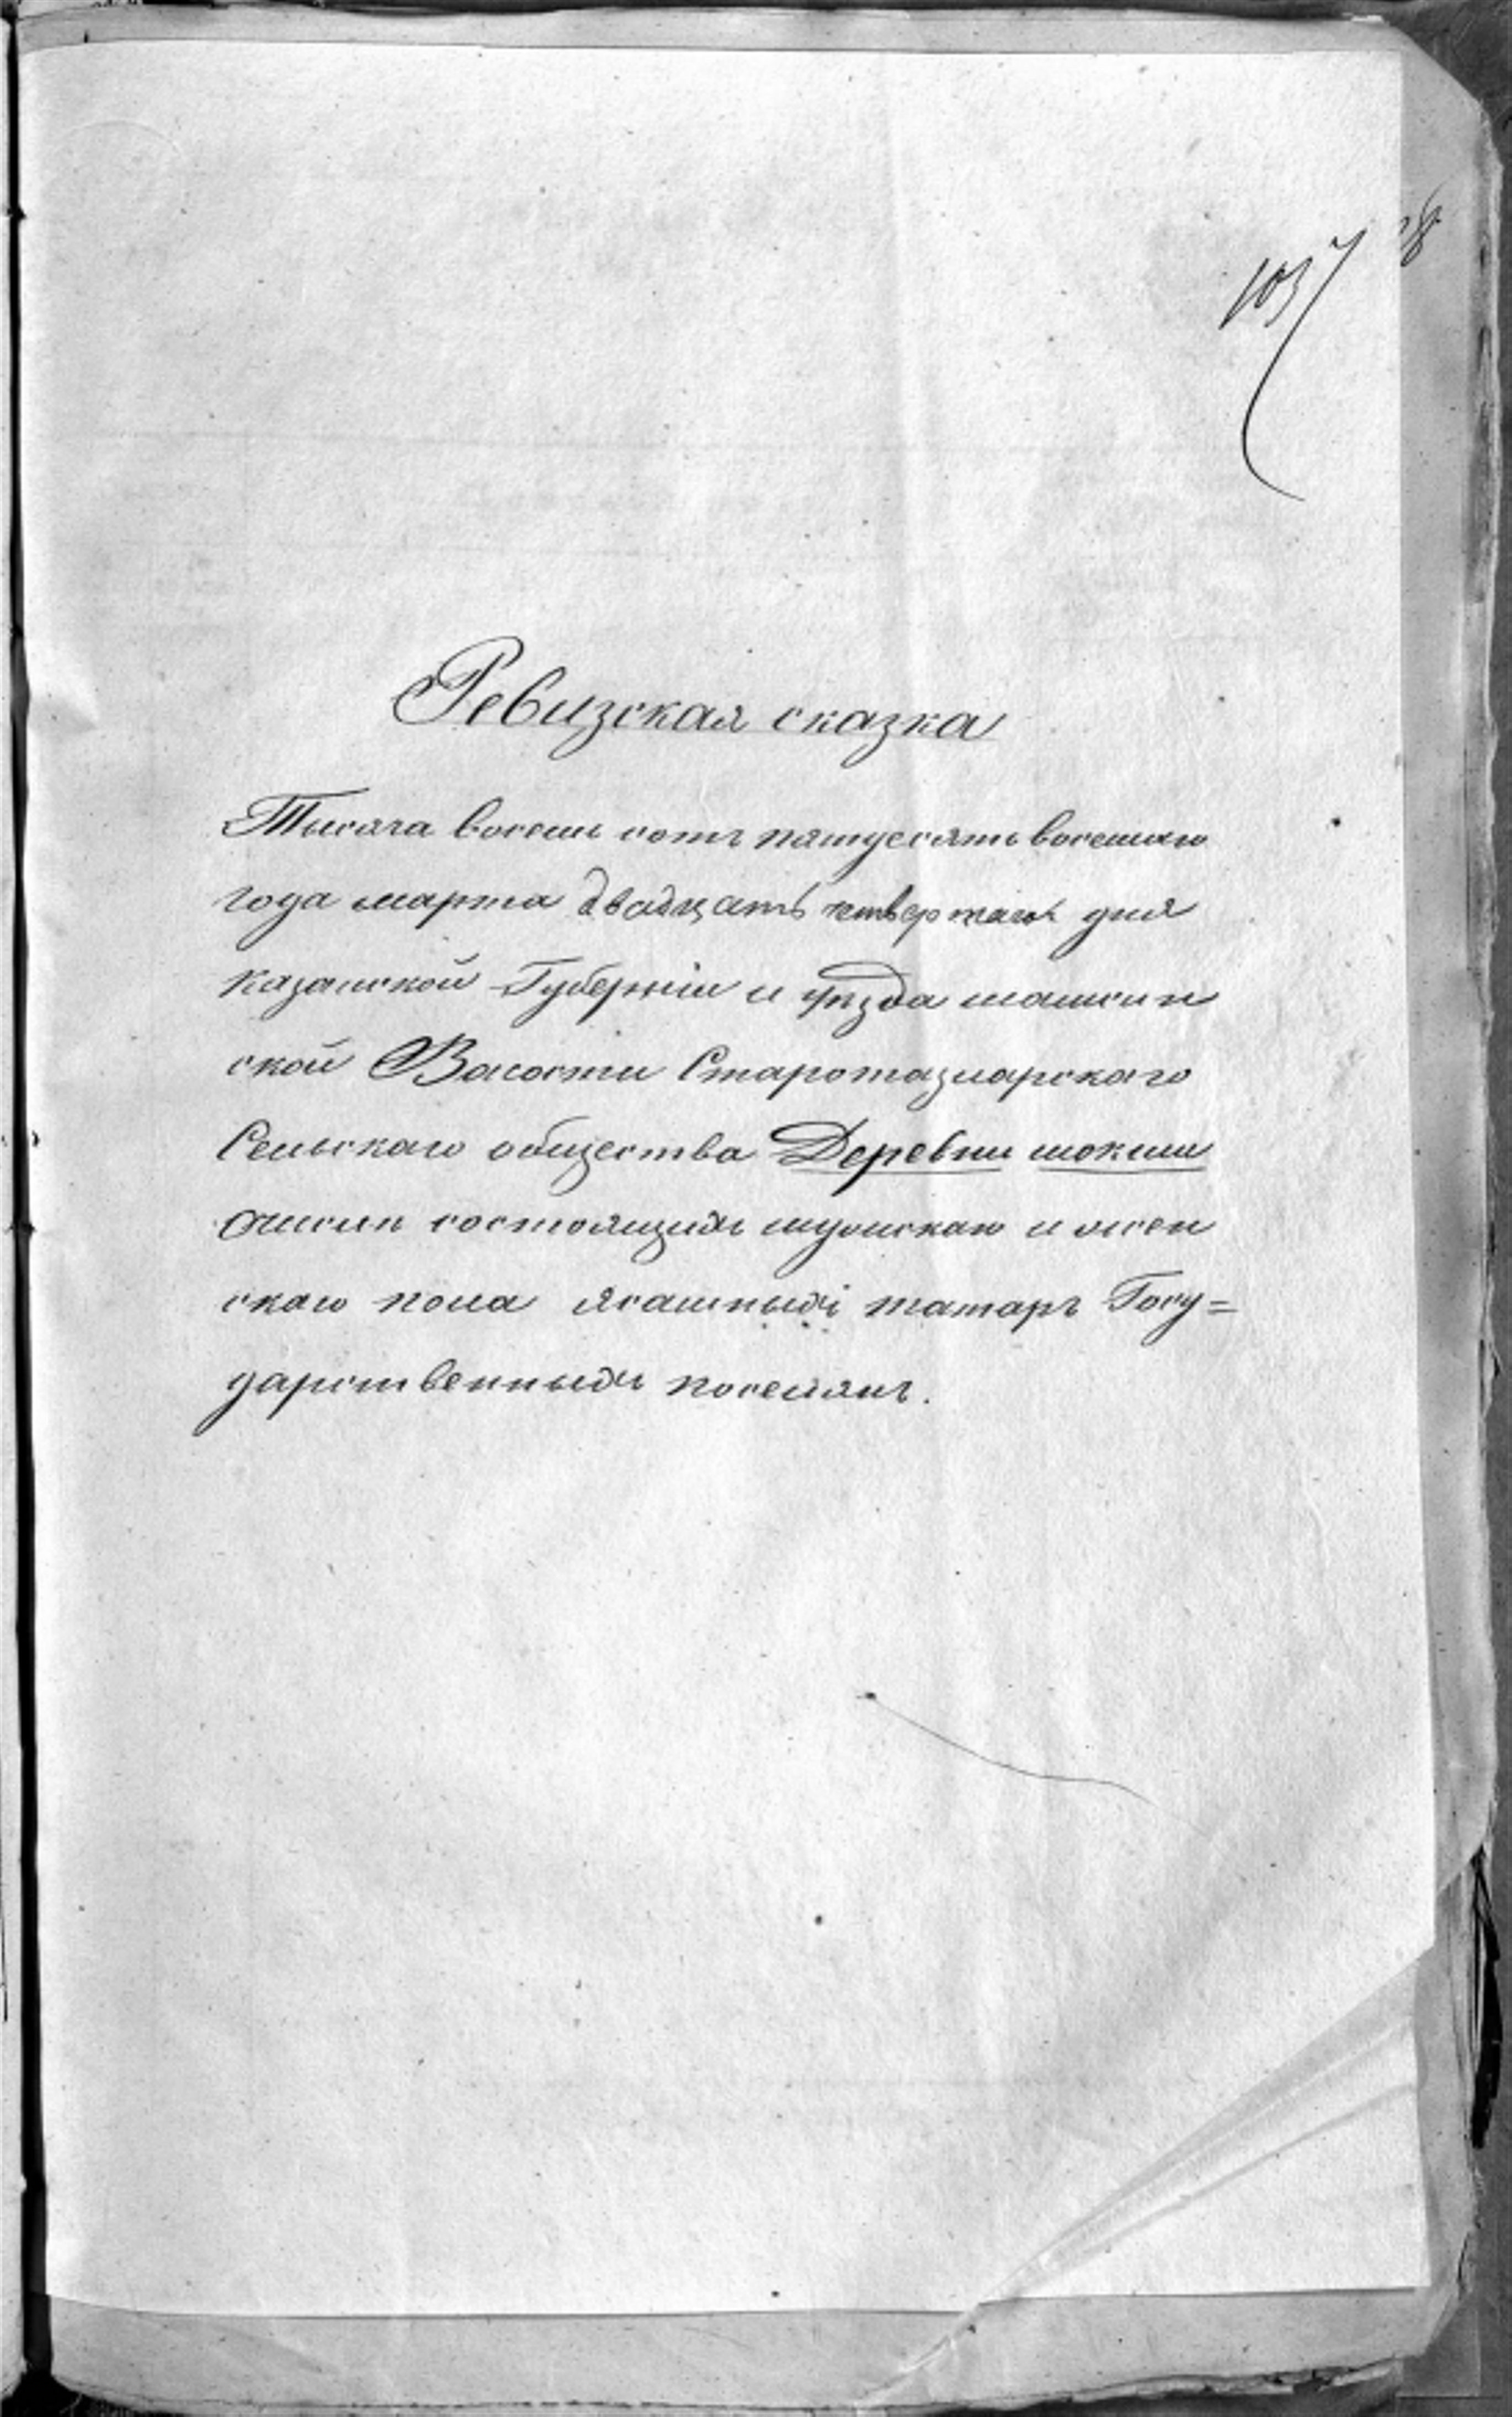 1037
Ревизская сказка
Тысяча восемь сотъ пятдесять восемаго
года марта двадцать четвертаго дня
Казанской Губерніи и уѣзда машин
ской Волости Старотазларскаго
Сельскаго общества Деревни шокши
состоящихъ мужскаго и жен
скаго пола ясашныхъ татаръ Госу=
дарственныхъ поселянъ.